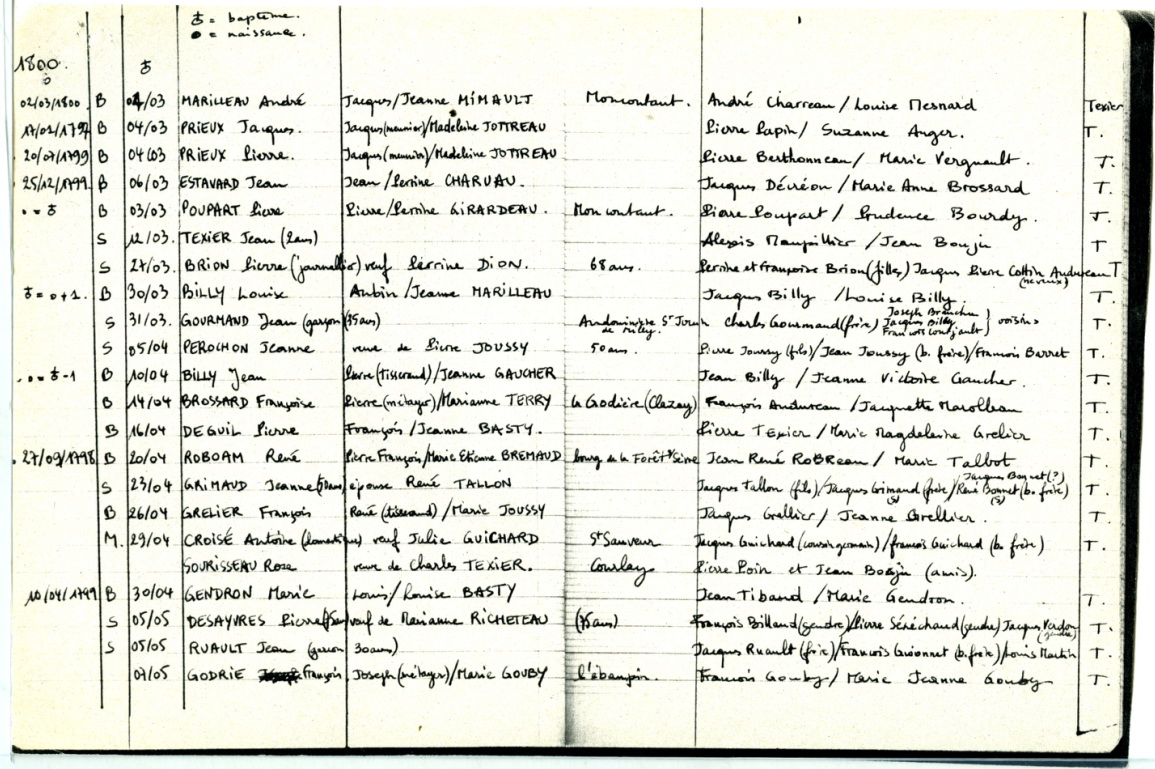 ♁ = baptême.
● = naissance.
1800.
♁
02/03/1800 B 04/03 MARILLEAU André Jacques/Jeanne MIMAULT Moncoutant. André Charreau / Louise Mesnard Texier
B 04/03 PRIEUX Jacques. Jacques (meunier)/Madeleine JOTTREAU Pierre Papin / Suzanne Anger. T.
B 04/03 PRIEUX Pierre. Jacques (meunier)/Madeleine JOTTREAU Pierre Berthonneau / Marie Vergnault. T.
25/12/1799 B 06/03 ESTAVARD Jean Jean / Perrine CHARUAU. Jacques Décréon / Marie Anne Brossard T.
● = ♁ B 03/03 POUPART Pierre Pierre/Perrine GIRARDEAU. Moncoutant. Pierre Poupart / Prudence Bourdy. T.
S 12/03. TEXIER Jean (2ans) Alexis Maupillier / Jean Bouju T
S 27/03. BRION Pierre (journallier) veuf Perrine DION. 68 ans. Perrine et Françoise Brion (filles) Jacques Pierre Cottin Andureau T
(neveux)
♁ = ● + 1. B 30/03 BILLY Louise Aubin / Jeanne MARILLEAU Jacques Billy / Louise Billy. T.
S 31/03. GOURMAND Jean (garçon) (35ans) St Jouin de Milly. Charles Gourmand (frère) Joseph Jacques Billy François voisins T.
S 05/04 PEROCHON Jeanne veuve de Pierre JOUSSY 50 ans. Pierre Joussy (fils)/Jean Joussy (b. frère)/François Barret T.
● = ♁ - 1 B 10/04 BILLY Jean Pierre (tisserand)/Jeanne GAUCHER Jean Billy / Jeanne Victoire Gaucher. T.
B 14/04 BROSSARD Françoise Pierre (métayer)/Marianne TERRY la Godière (Clazay) François Andureau / Jacquette Marolleau T.
B 16/04 DEGUIL Pierre François / Jeanne BASTY. Pierre TExier / Marie Magdeleine Grelier T.
27/09/1798 B 20/04 ROBOAM René Pierre François/Marie Etienne BREMAUD bourg de la Forêt s/ Sèvre Jean René RoBReau / Marie Talbot T.
S 23/04 GRIMAUD Jeanne épouse René TALLON Jacques Tallon (fils)/Jacques Grimaud (frère)/René Bonnet (b. frère) Jacques Bonnet (?) T.
B 26/04 GRELIER François René (tisserand) / Marie JOUSSY Jacques Grellier / Jeanne Grellier. T.
M. 29/04 CROISÉ Antoine (domestique) veuf Julie GUICHARD St Sauveur Jacques Guichard (cousin germain) / françois Guichard (b. frère) T.
SOURISSEAU Rose veuve de Charles TEXIER. Courlay Pierre Poin et Jean Bouju (amis).
10/04/1799 B 30/04 GENDRON Marie Louis / Louise BASTY Jean Tibaud / Marie Gendron. T.
S 05/05 DESAYVRES Pierre veuf de Marianne RICHETEAU (75ans) François Billaud (gendre)/Pierre Sénéchaud (gendre) Jacques Verdon (gendre) T.
S 05/05 RUAULT Jean (garçon 30ans) Jacques Ruault (frère)/François Guionnet (b. frère)/Louis Martin T.
07/05 GODRIE François Joseph (métayer)/Marie GOUBY l'ébaupin. François Gouby / Marie Jeanne Gouby T.